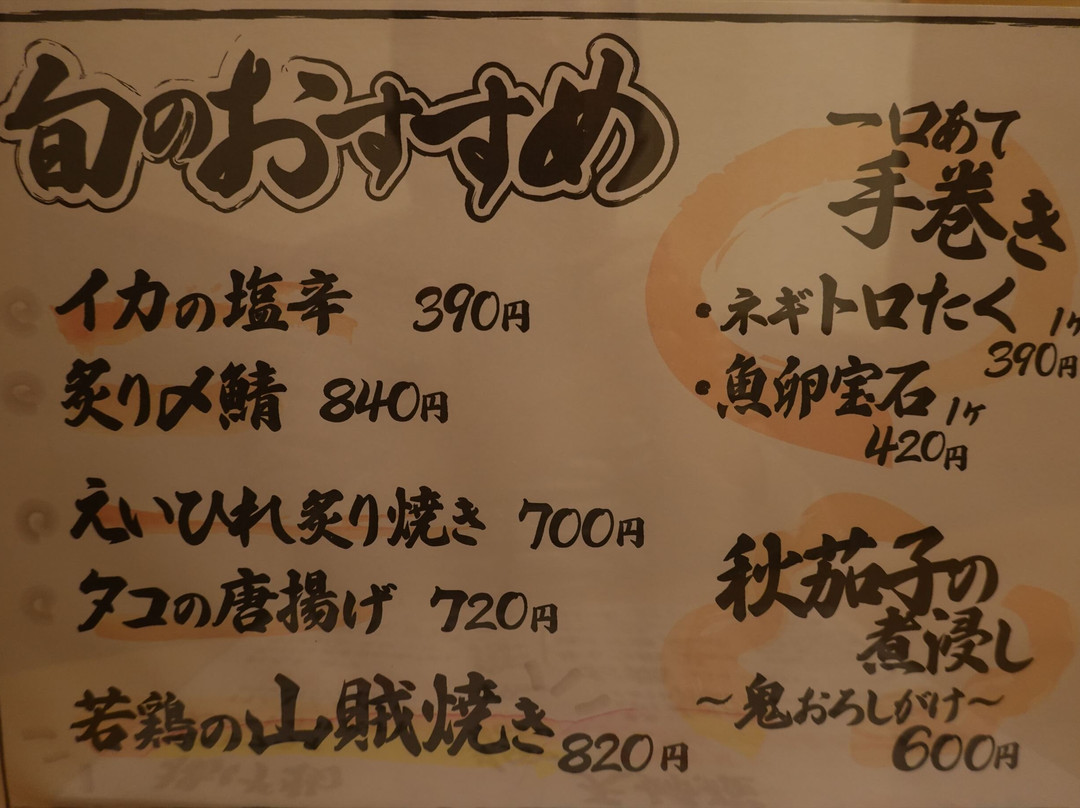 旬のおすすめ
イカの塩辛 390円
炙り〆鯖 840円
えいひれ炙り焼き 700円
タコの唐揚げ 720円
若鶏の山賊焼き 820円
一口あて
手巻き
・ネギトロたく 1ヶ
390円
・魚卵宝石 1ヶ
420円
秋茄子の
煮浸し
～鬼おろしがけ～
600円